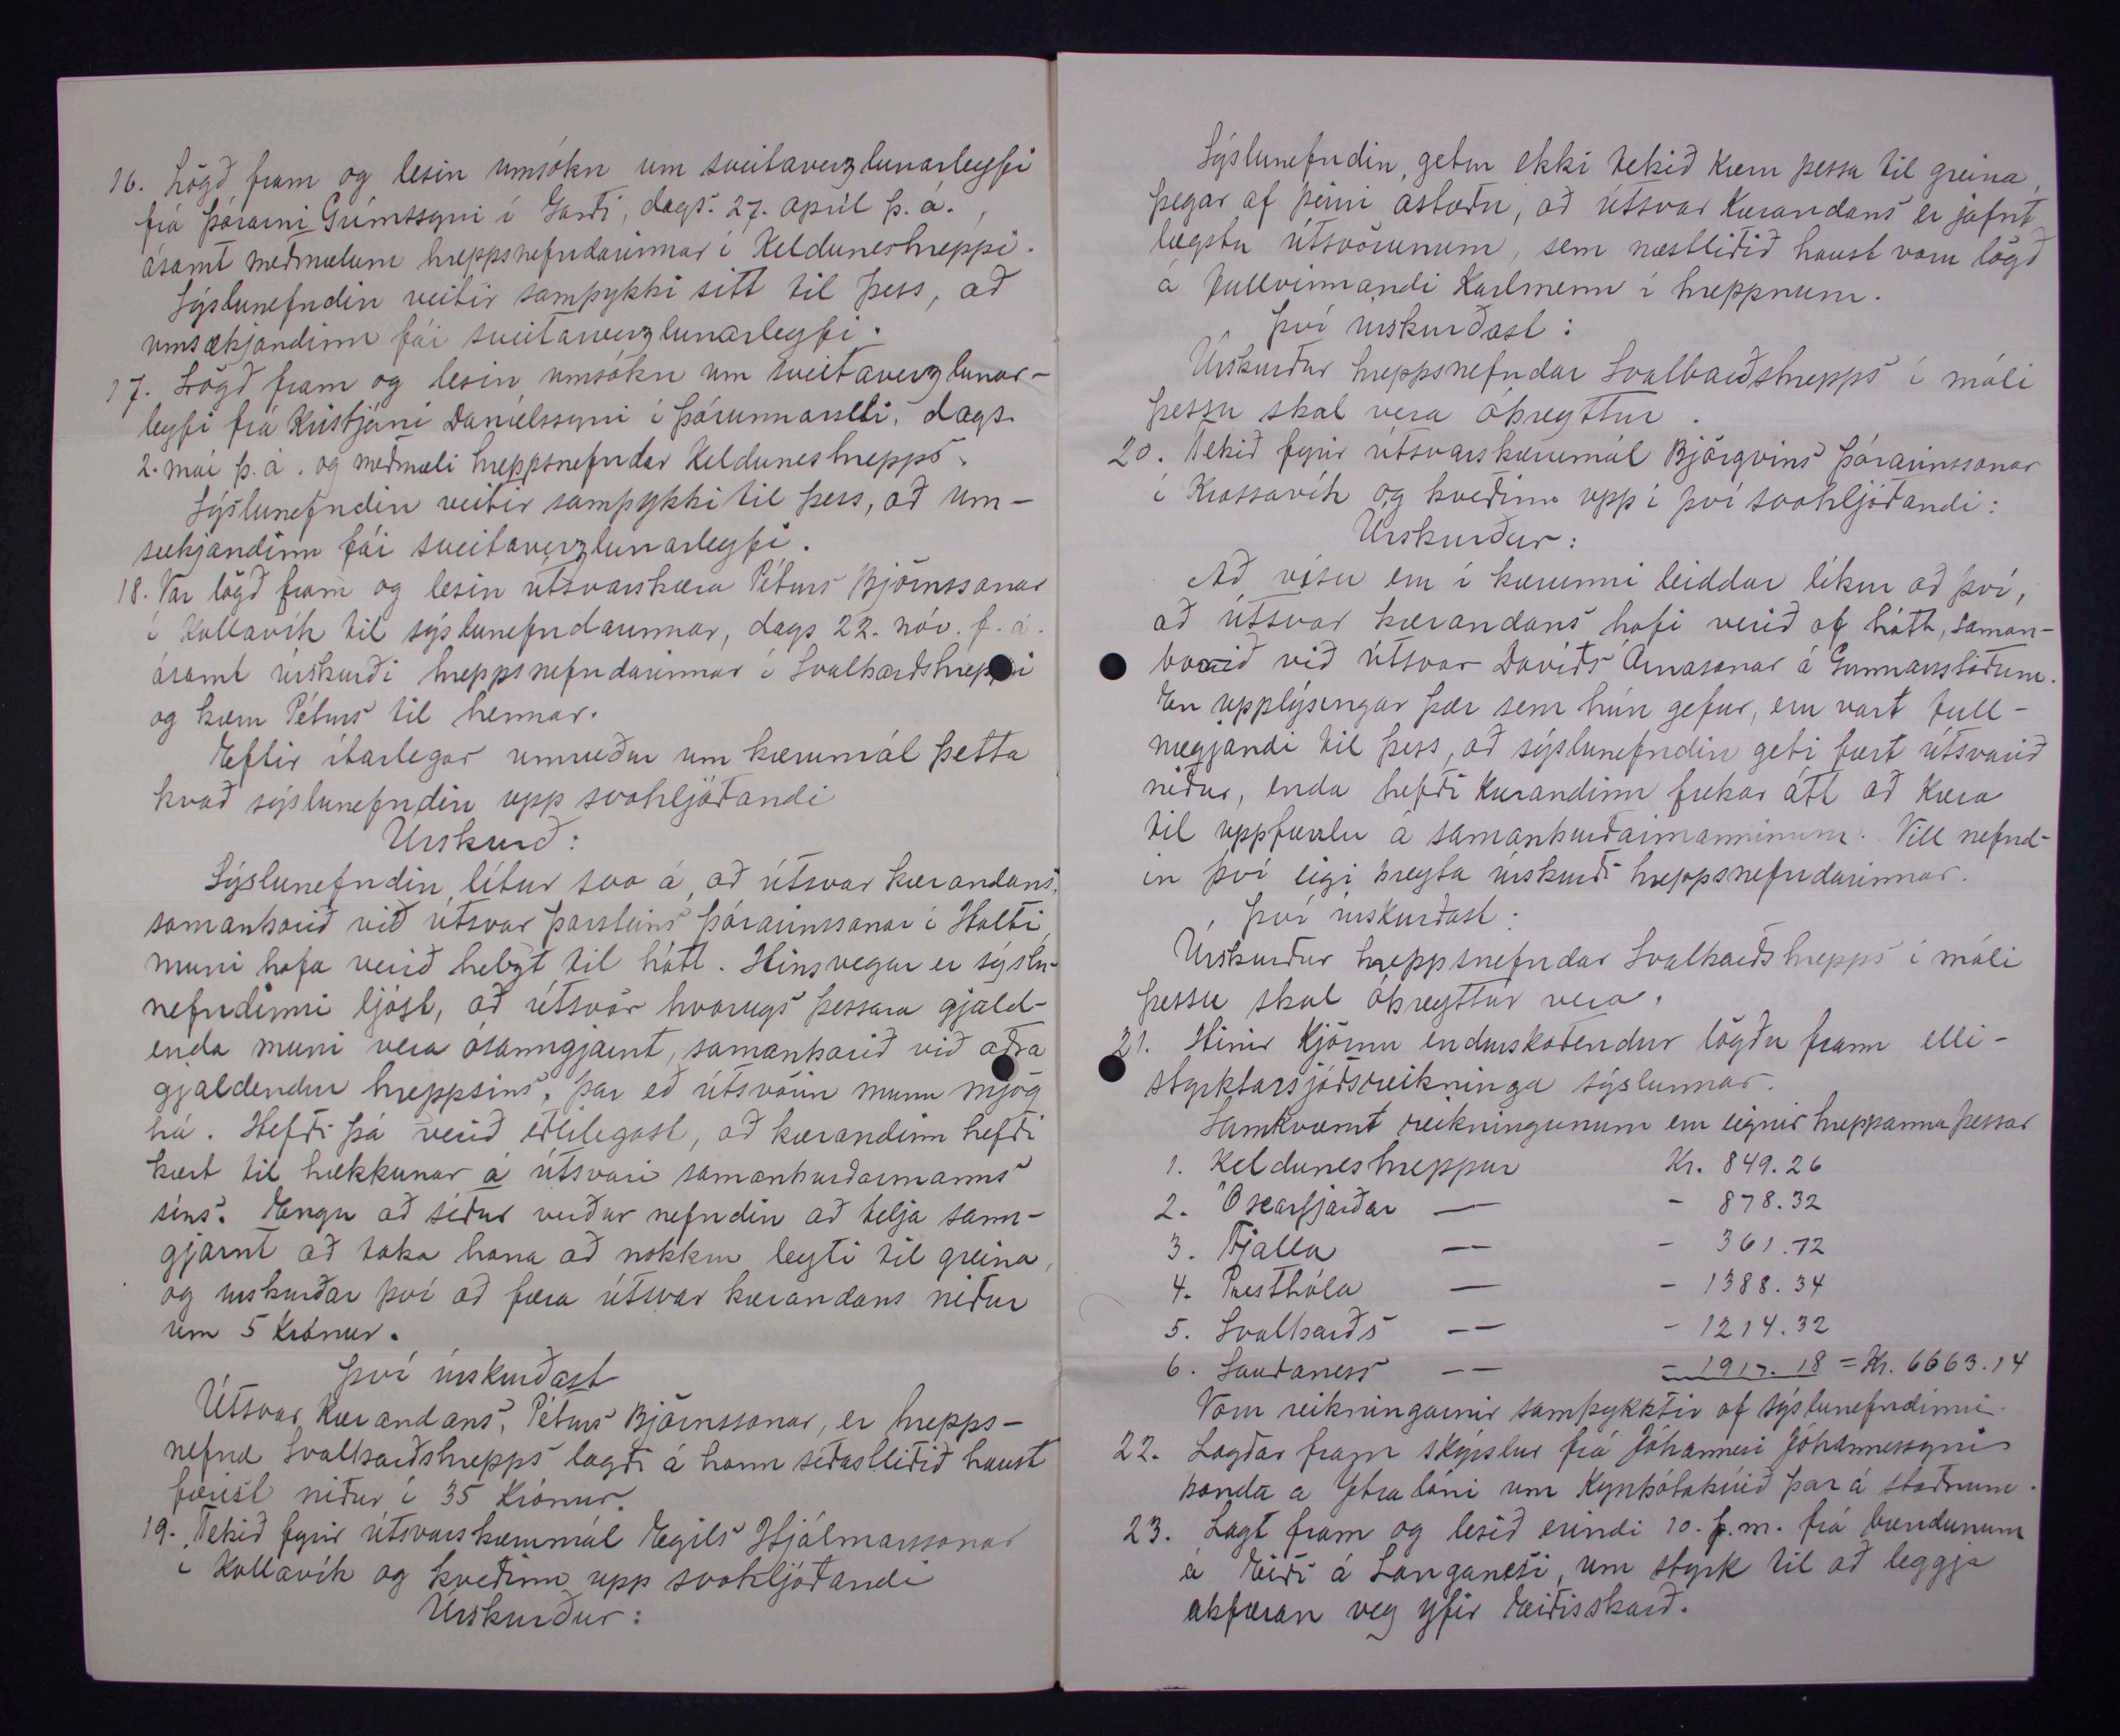 16. Lögð fram og lesin umsókn um sveitaverzlunarleyfi
frá Þórarni Grímssyni í Garði, dags. 27. apríl þ.á.,
ásamt meðmælum hreppsnefndarinnar í Kelduneshreppi.
Sýslunefndin veitir samþykki sitt til þess, að
umsækjandinn fái sveitarverzlunarleyfi.
17. Lögð fram og lesin umsókn um sveitaverzlunar-
leyfi frá Kristjáni Daníelssyni í Þórunnarseli, dags.
2. maí þ.á. og meðmæli hreppsnefndar Kelduneshrepps.
Sýslunefndin veitir samþykki til þess, að um-
sækjandinn fái sveitaverzlunarleyfi.
18. Var lögð fram og lesin útsvarskæra Péturs Björnssonar
í Kollavík til sýslunefndarinnar, dags 22. nóv. f.á.
ásamt úrskurði hreppsnefndarinnar í Svalbarðshreppi
og kæru Péturs til hennar.
Eftir ítarlegar umræður um kærumál þetta
kvað sýslunefndin upp svohljóðandi
Úrskurð:
Sýslunefndin lítur svo á, að útsvar kærandans,
samanborið við útsvar Þorsteins Þórarinssonar í Holti,
muni hafa verið helzt til hátt. Hinsvegar er sýslu-
nefndinni ljóst, að útsvör hvorugs þessara gjald-
enda muni vera ósanngjarnt, samanborið við aðra
gjaldendur hreppsins, þar eð útsvörin munu mjög
há. Hefði þá verið eðlilegast, að kærandinn hefði
kært til hækkunar á útsvari samanburðarmanns
síns. Engu að síður verður nefndin að telja sann-
gjarnt að taka hana að nokkru leyti til greina,
og úrskurðar því að færa útsvar kærandans niður
um 5 krónur.
Því úrskurðast
Útsvar kærandans, Péturs Björnssonar, er hrepps-
nefnd Svalbarðshrepps lagði á hann síðastliðið haust
færist niður í 35 krónur.
19. Tekið fyrir útsvarskærumál Egils Hjálmarssonar
í Kollavík og kveðinn upp svohljóðandi
Úrskurður:
Sýslunefndin, getur ekki tekið kæru þessa til greina,
þegar af þeirri ástæðu, að útsvar kærandans er jafnt
lægstu útsvörunum, sem næstliðið haust voru lögð
á fullvinnandi karlmenn í hreppnum.
Því úrskurðast:
Úrskurður hreppsnefndar Svalbarðshrepps í máli
þessu skal vera óbreyttur.
20. Tekið fyrir útsvarskærumál Björgvins Þórarinssonar
í Krossavík og kveðinn upp í því svohljóðandi:
Úrskurður:
Að vísu eru í kærunni leiddar líkur að því,
að útsvar kærandans hafi verið of hátt, saman-
borið við útsvar Davíðs Árnasonar á Gunnarsstöðum.
En upplýsingar þær sem hún gefur, eru vart full-
nægjandi til þess, að sýslunefndin geti fært útsvarið
niður, enda hefði kærandinn frekar átt að kæra
til uppfærslu á samanburðarmanninum. Vill nefnd-
in því eigi breyta úrskurði hreppsnefndarinnar.
Því úrskurðast:
Úrskurður hreppsnefndar Svalbarðshrepps í máli
þessu skal óbreyttur vera.
21. Hinir kjörnu endurskoðendur lögðu fram elli-
styrktarsjóðsreikninga sýslunnar.
Samkvæmt reikningunum eru eignir hreppanna þessar
1. Kelduneshreppur Kr. 849.26
2. Öxarfjarðar — - 878.32
3. Fjalla — - 361.72
4. Presthóla — - 1388.34
5. Svalbarðs — - 1214.32
6. Sauðaness — - 1917.18 = Kr. 6663.14
Voru reikningarnir samþykktir af sýslunefndinni.
22. Lagðar fram skýrslur frá Jóhannesi Jóhannessyni
bonda á Ytralóni um kynbótabúið þar á staðnum.
23. Lagt fram og lesið erindi 10. f.m. frá bændunum
á Eiði á Langanesi, um styrk til að leggja
akfæran veg yfir Eiðisskarð.